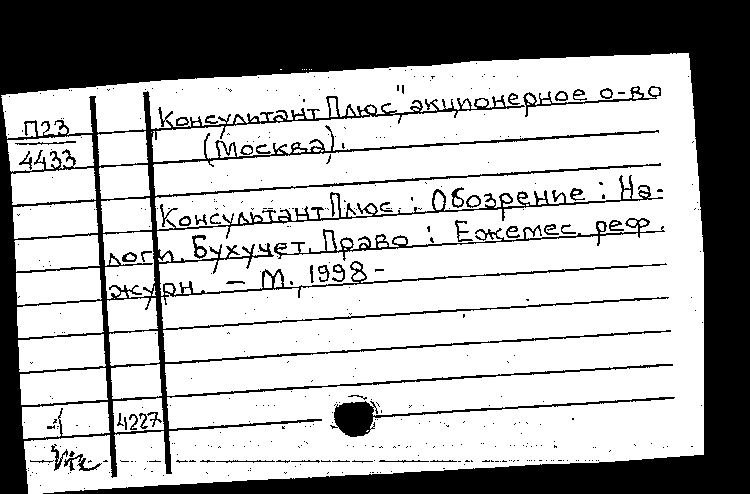 П23
4433
„КонсультантПлюс", акционерное о-во
(Москва).
КонсультантПлюс. : Обозрение : На-
логи. Бухучет. Право : Ежемес. реф.
журн. – М., 1998 –
4227